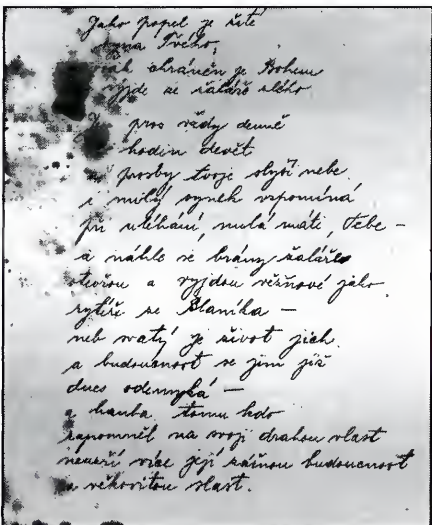 Jako popel je šité
syna Tvého,
tak chráněn je Bohem
vyjde ze žaláře zlého
pros vždy denně
hodin devět
prosby tvoje slyší nebe
i milý synek vzpomíná
při uléhání, milá máti, Tebe –
a náhle se brány žaláře
otevřou a vyjdou vězňové jako
rytíři ze Blaníka –
neb svatý je život jich
a budoucnost se jim již
dnes odemyká –
a hanba tomu kdo
zapomněl na svoji drahou vlast
neuzří více její zářnou budoucnost
a věkovitou slast.